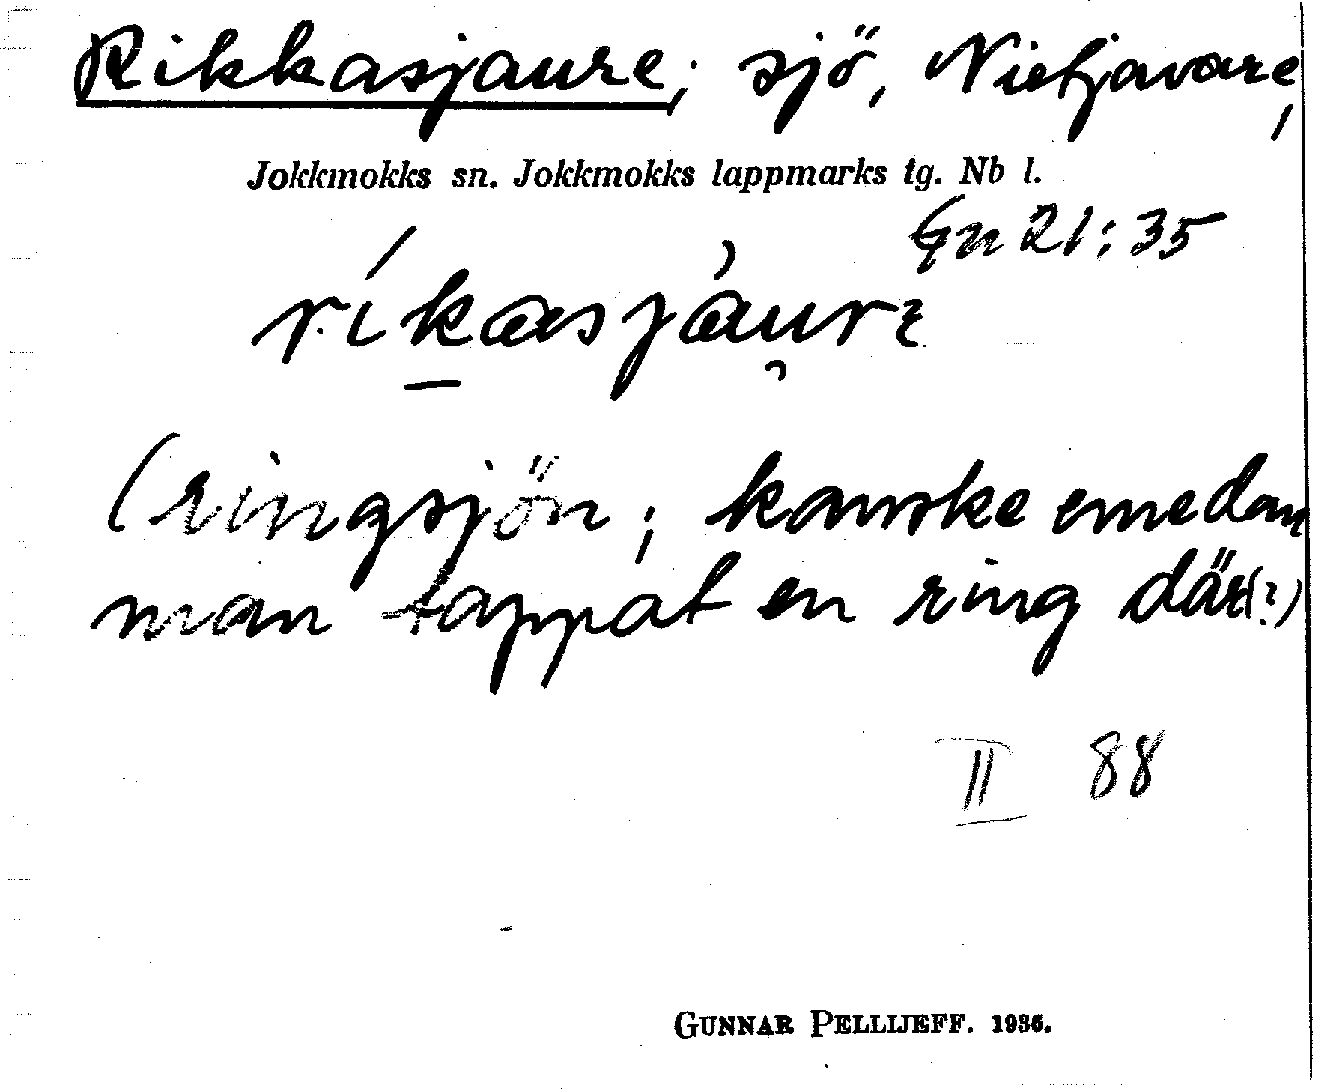 Rikkasjaure; sjö, Nietjavare,
Jokkmokks sn. Jokkmokks lappmarks tg. Nb l.
Gn 21:35
ríkasjáurɛ
(ringsjön; kanske emedan
man tappat en ring där(?)
II 88
GUNNAR PELLIJEFF. 1936.